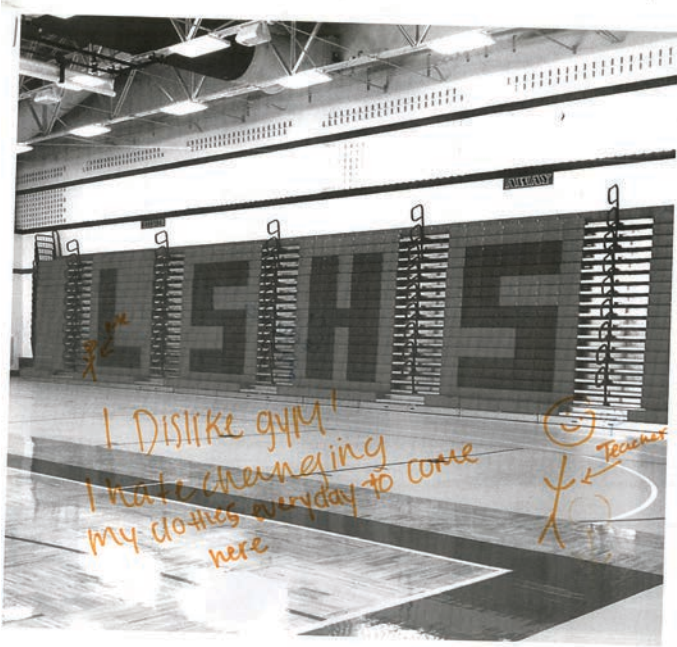 AWAY
LSHS
me
I Dislike gym!
I hate changing
my clothes everyday to come
here
Teacher